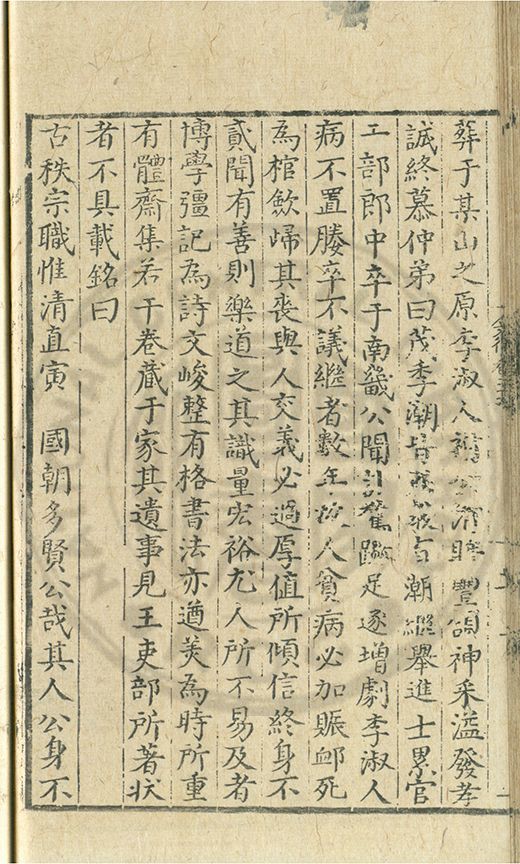 葬于某山之原李淑人祔公 豐頷神采溢發孝
誠終慕仲弟曰茂李潮 潮繼舉進士累官
工部郎中卒于南畿公聞訃驚蹶足遂增劇李淑人
病不置媵卒不議繼者數年 人貧病必加賑卹死
為棺斂歸其喪與人交義必過厚值所傾信終身不
貳聞有善則樂道之其識量宏裕尤人所不易及者
博學彊記為詩文峻整有格書法亦遒美為時所重
有體齋集若干卷藏于家其遺事見王吏部所著狀
者不具載銘曰
古秩宗職惟清直寅 國朝多賢公哉其人公身不